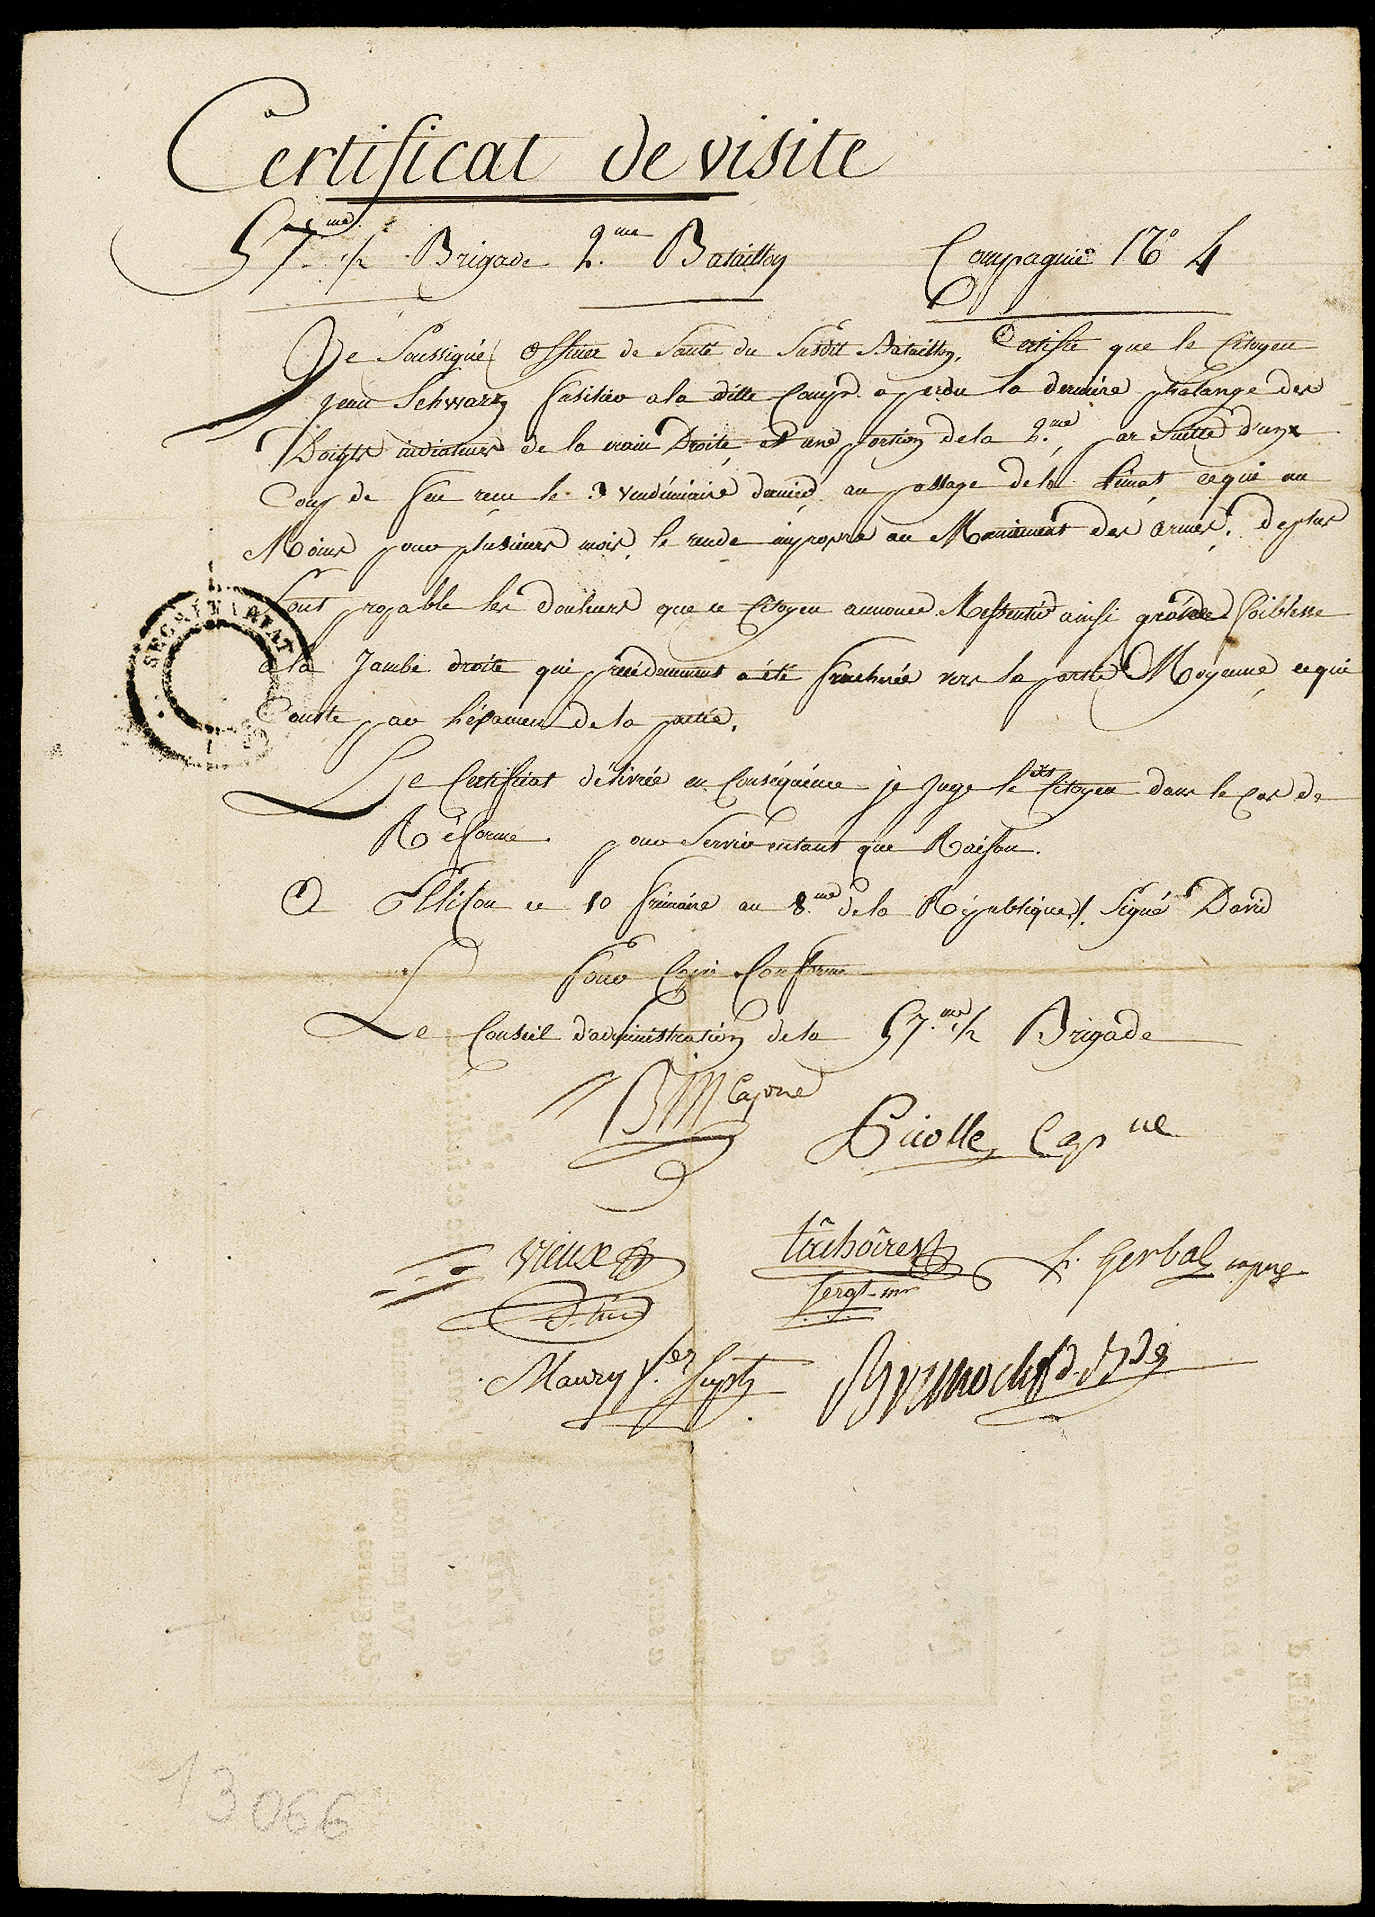 Certificat de visite
57.me 1/2 Brigade 2.me Bataillon Compagnie No 4
Je Soussigné officier de Santé du Susdit Bataillon, Certifie que le Citoyen
jean Schwarz fusilier a la ditte Comp. a perdu la derniere phalange des
Doigts indicateur de la main Droite, et une portion de la 2.me, par Suitte d'un
Coup de feu reçu le 3 vendémiaire dernier, au passage de la Limat, ce qui au
Moins pour plusieurs mois, le rende inpropre au Maniement des armes, de plus
Sont probable les douleurs que ce Citoyen annonce Ressentir ainsi grande foiblesse
a la Jambe droite qui précédemment a été fracturée vers la partie Moyenne, ce qui
Conste par l'éxamen de la partie.
Le Certificat délivrée en Conséquence je juge le dit Citoyen dans le cas de
Réforme pour Servir entant que Raison.
A ce 10 frimaire an 8.me de la République. Signé David
Pour Copie Conforme
Le Conseil d'administration de la 57.me 1/2 Brigade
Cap.ne
Cap ne
vieux
S. lieu
tâchoires
Sergt-mr
Gerbal capne
Maury
SECRETARIAT
13066